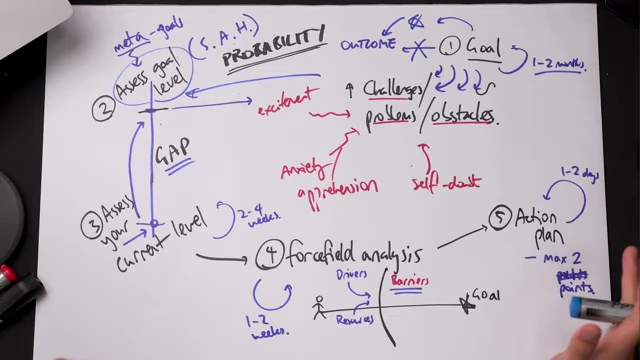 meta-goals
(S.A.H.)
PROBABILITY
OUTCOME
① Goal
1-2 months.
② Assess goal
level
excitement
↑ Challenges/
problems/obstacles.
GAP
Anxiety
apprehension
self-doubt
③ Assess
your
current level
2-4
weeks.
④ forcefield analysis
1-2
weeks.
Drivers
Resources
Barriers
Goal
⑤ Action
plan
1-2 days
- max 2
points.